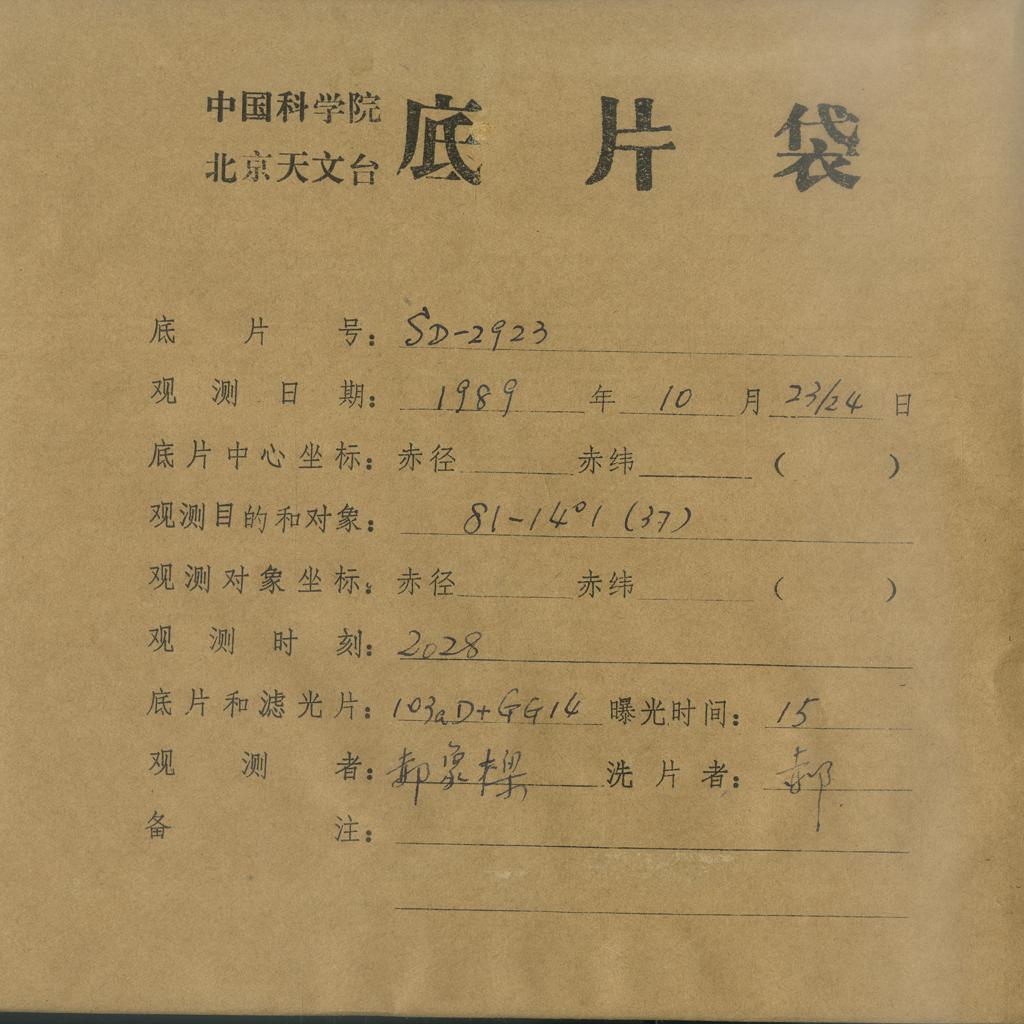 中国科学院
北京天文台
底片袋
底片号：SD-2923
观测日期：1989年10月23/24日
底片中心坐标：赤径 赤纬 （ ）
观测目的和对象：81-14°1 (37)
观测对象坐标：赤径 赤纬 （ ）
观测时刻：2028
底片和滤光片：103aD+GG14 曝光时间：15
观测者：郝象樑 洗片者：郝
备注：